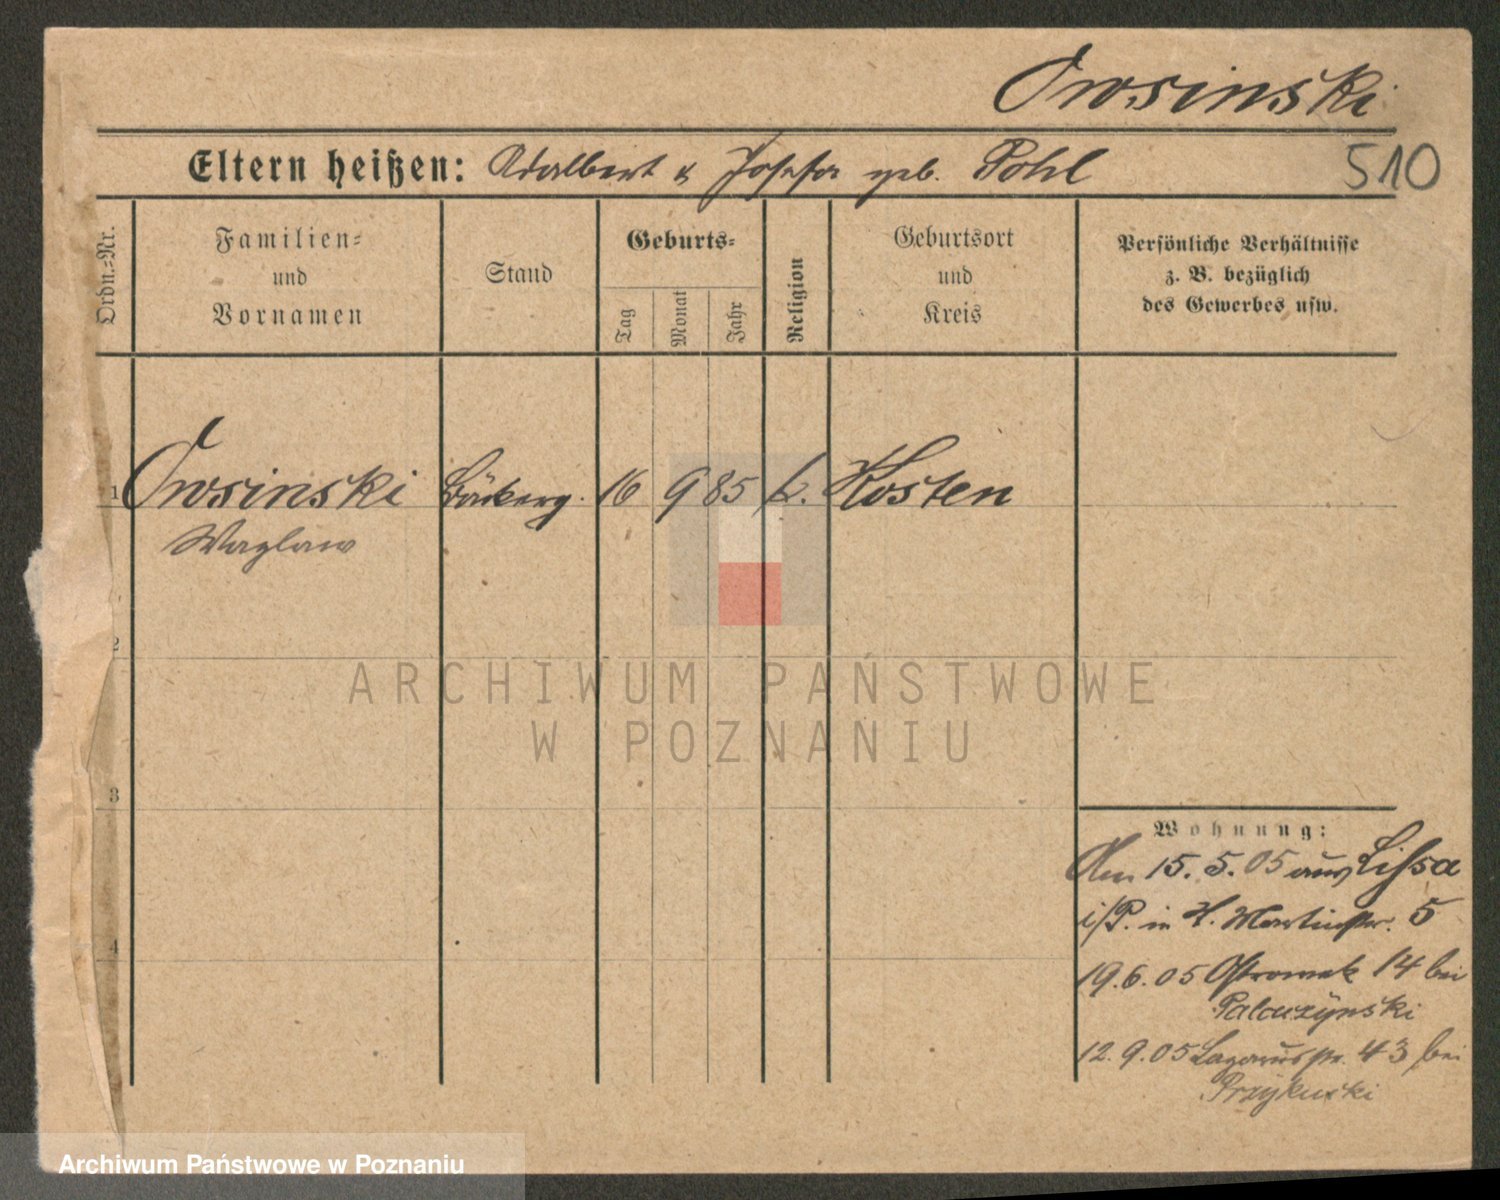 Owsinski
510
Eltern heißen: Adalbert & Josefa geb. Pohl
Ordn.-Nr.
Familien-
und
Vornamen
Stand
Geburts-
Tag
Monat
Jahr
Religion
Geburtsort
und
Kreis
Persönliche Verhältnisse
z. B. bezüglich
des Gewerbes usw.
1 Owsinski Bäckerg. 16 9 85 k. Kosten
Wazlaw
2
3
4
Wohnung:
Am 15. 5. 05 aus Lissa
i/P. in H. Martinstr. 5
19. 6. 05 Ostrowek 14 bei
12. 9. 05 Lazarusstr. 43 bei
ARCHIWUM PAŃSTWOWE
W POZNANIU
Archiwum Państwowe w Poznaniu